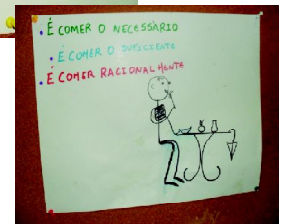 . É COMER O NECESSÁRIO
. É COMER O SUFICIENTE
. É COMER RACIONALMENTE